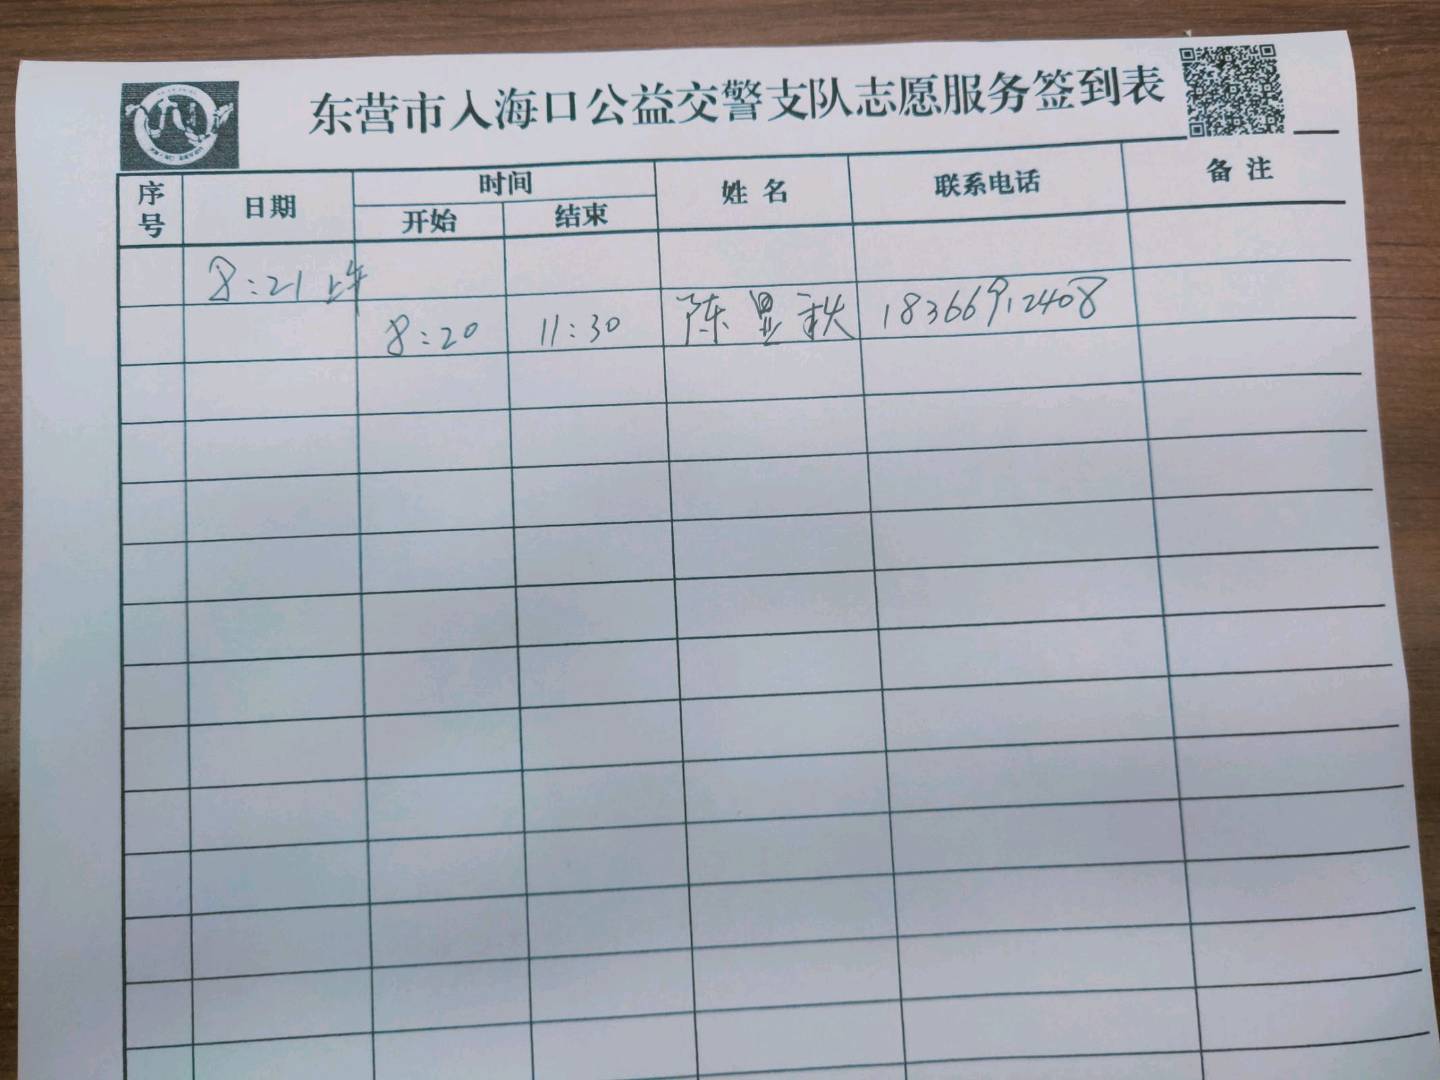 东营市入海口公益交警支队志愿服务签到表
序号 日期 时间 姓名 联系电话 备注
开始 结束
8:21 上午
8:20 11:30 陈显秋 18366912408